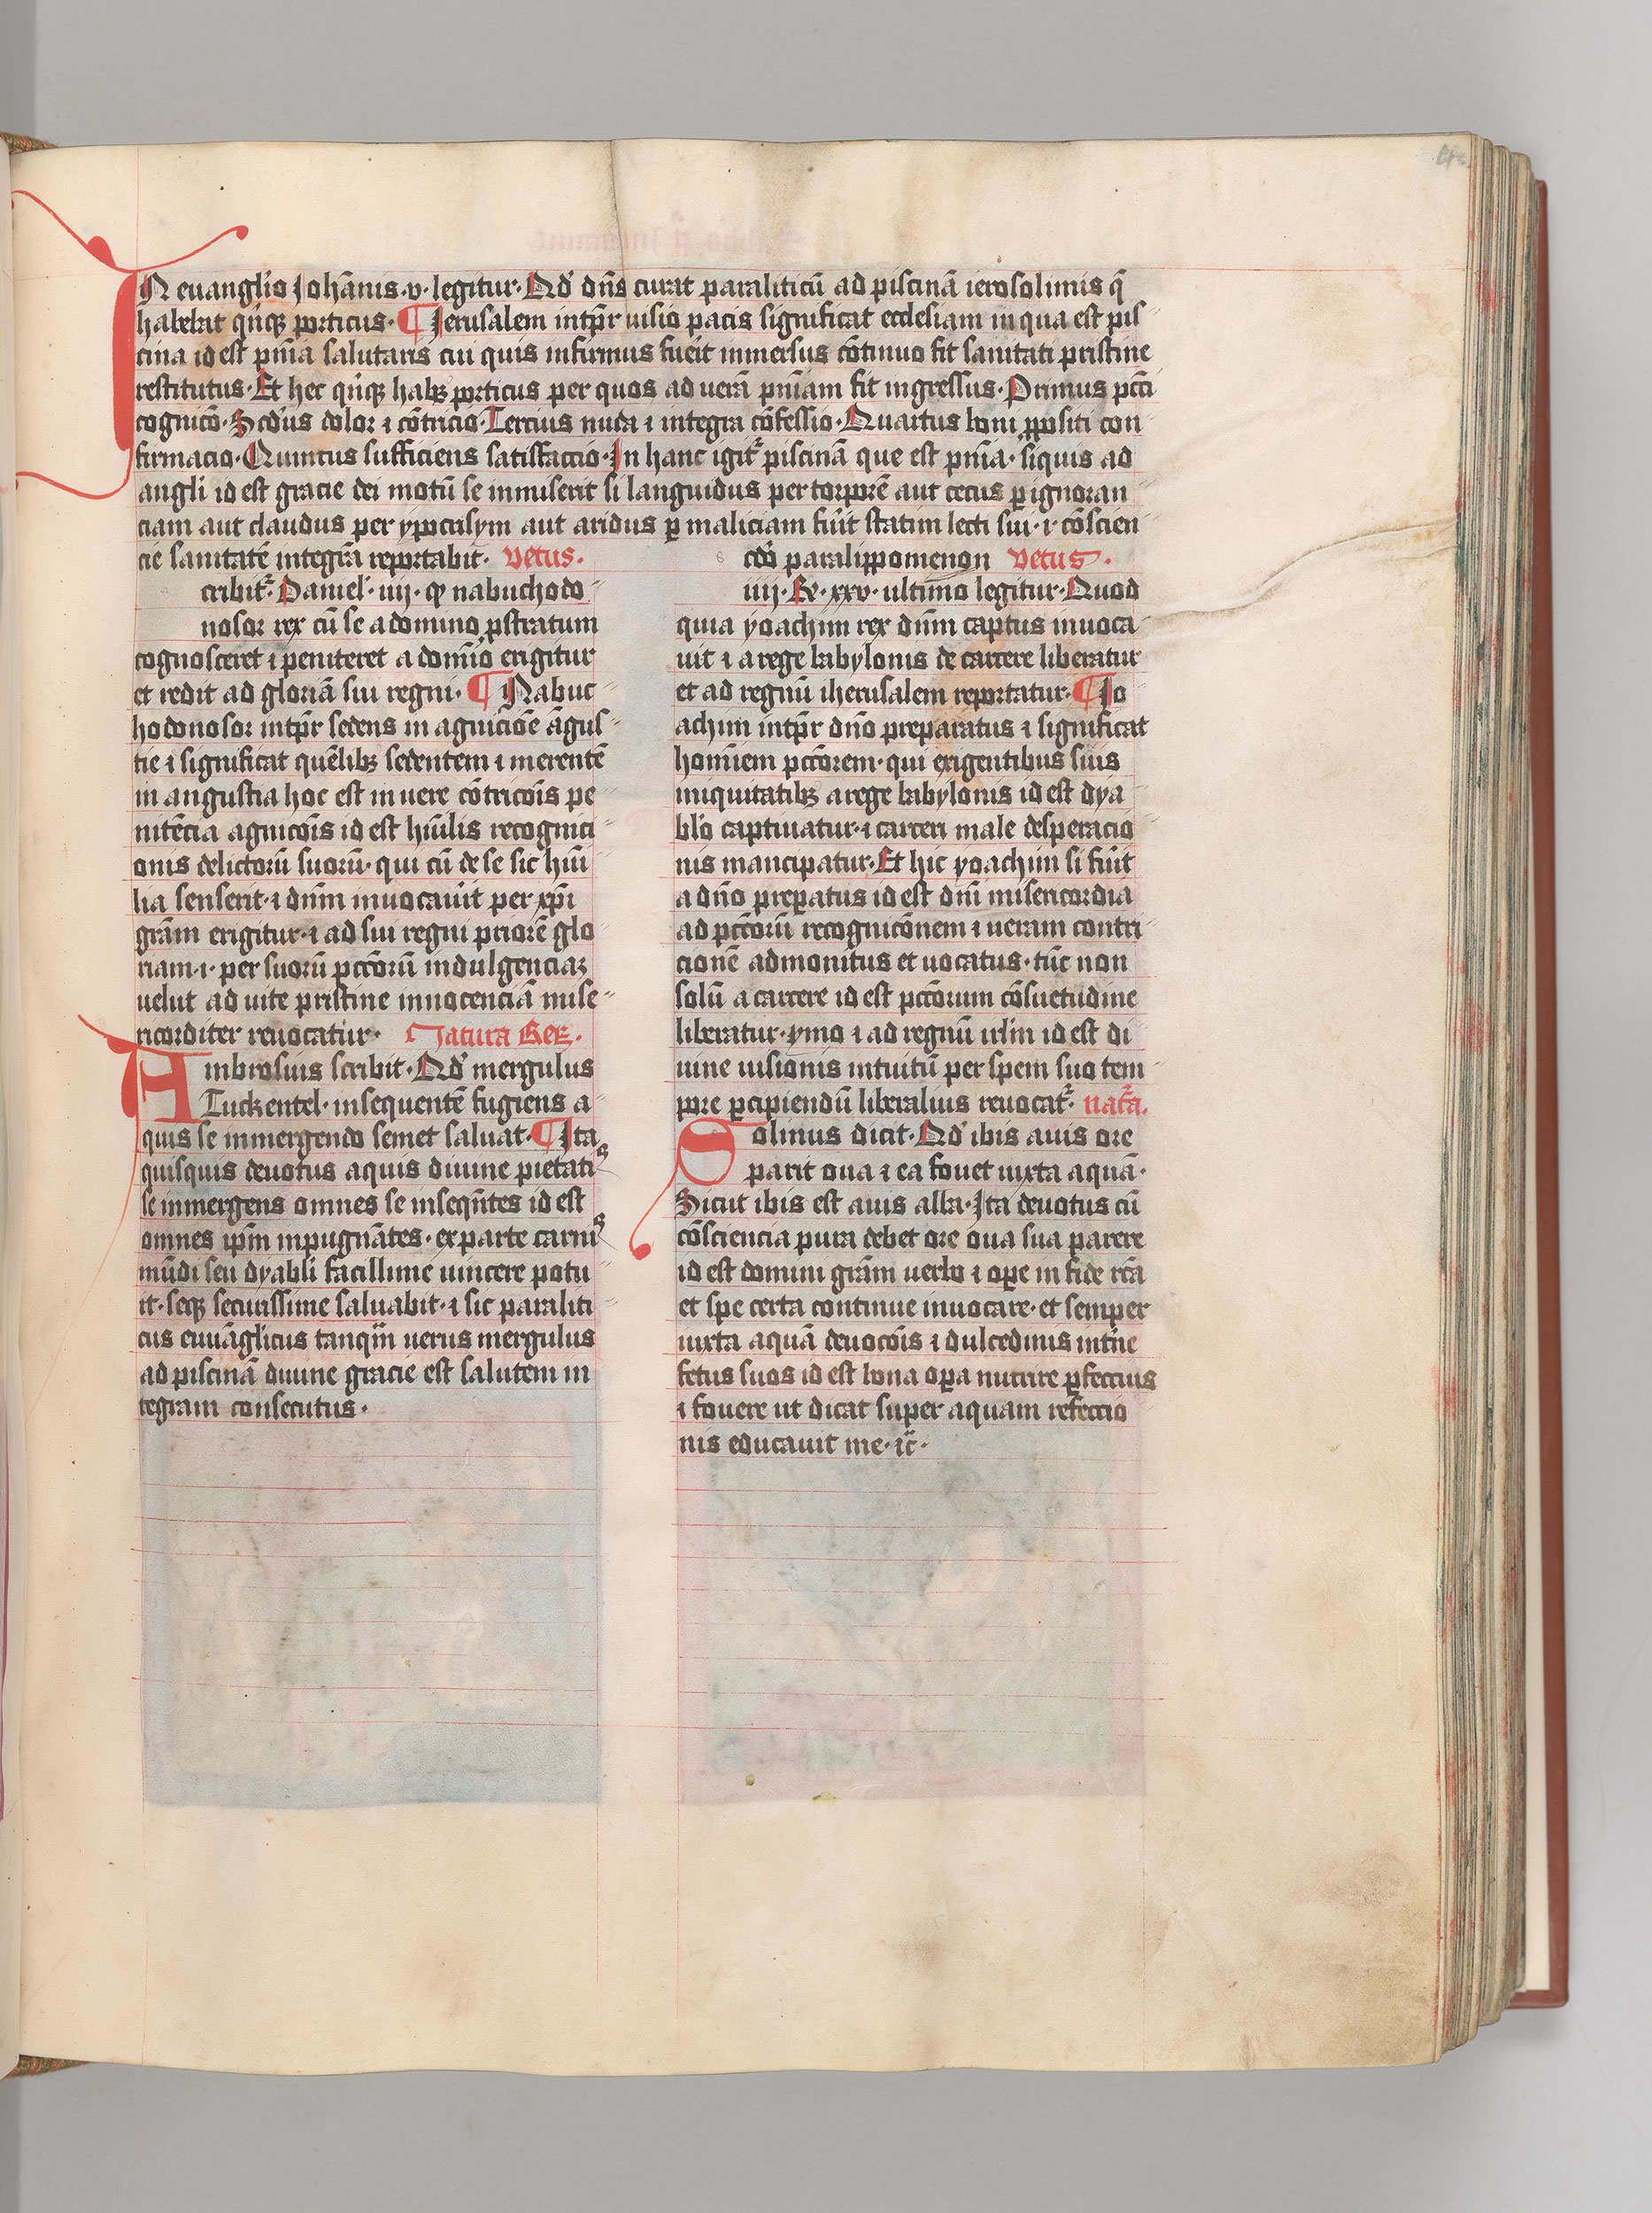 IN euangl'io Johānis·v·legitur·Qd' dn̄s curat paraliticū ad piscinā ierosolimis q̄
habebat qi̇nqꝫ porticus·¶ Jerusalem intp̄r uisio pacis significat ecclesiam in qua est pis
cina id est pn̄ia salutaris cui quis infirmus fueit inmersus cōtinuo fit sanitati pristine
restitutus·Et hec qi̇nqꝫ habꝫ porticus per quos ad uerā pn̄iam fit ingressus·Primus pcc̄i
cognicō·Scd'us dolor ⁊ cōtricio·Tercius nuda ⁊ integra cōfessio·Quartus boni ꝓpositi con
firmacio·Quintus sufficiens satisfaccio·In hanc igit᷑ piscinā que est pn̄ia·siquis ad
angli id est gracie dei motū se inmiserit si languidus per torporē aut cecus ꝑ ignoran
ciam aut claudus per ypocrisym aut aridus ꝑ maliciam fuīt statim lecti sui·i·cōscien
cie sanitatē integrā reportabit· vetus·
cribit᷑·Daniel·iiij·ꝙ nabuchodo
nosor rex cū se a domino ꝓstratum
cognosceret ⁊ peniteret a domīo erigitur
et redit ad gloriā sui regni·¶ Nabuc
hodonosor intp̄r sedens in agnicioē āgus
tie ⁊ significat quēlibꝫ sedentem ⁊ merentē
in angustia hoc est in uere cōtricoīs pe
nitēcia agnicoīs id est hūilis recognici
onis delictorū suorū·qui cū de se sic hūi
lia senserit·⁊ dn̄m inuocaūit per xp̄i
grām erigitur·⁊ ad sui regni priorē glo
riam·i·per suorū pcc̄orū indulgenciaꝫ
uelut ad uite pristine innocenciā mise
ricorditer reuocatur· Natura Rer̄·
Ambrosius scribit·Qd' mergulus
Tuckentel·insequentē fugiens a
quis se inmergendo semet saluat·¶ Ita
quisquis deuotus aquis diuine pietatis
se inmergens omnes se inseqn̄tes id est
omnes ip̄m inpugnātes·ex parte carnis
mūdi seu dyabli facillime uincere potu
it·seqꝫ secuissime saluabit·⁊ sic paraliti
cus euuāgl'icus tanqm̄ uerus mergulus
ad piscinā diuine gracie est salutem in
tegram consecutus·
cdō paralippomenon vetus·
iiij·Re·xxv·ultimo legitur·Quod
quia yoachim rex dn̄m captus inuoca
uit ⁊ a rege babylonis de carcere liberatur
et ad regnū iherusalem reportatur·¶ Jo
achim intp̄r dn̄o preparatus ⁊ significat
homīem pcc̄orem·qui exigentibus suis
iniquitatibꝫ a rege babylonis id est dya
bl'o captiuatur·⁊ carceri male desperacio
nis mancipatur·Et hic yoachim si fuīt
a dn̄o preꝑatus id est dn̄i misericordia
ad pcc̄orū recognicōnem ⁊ ueram contri
cionē admonitus et uocatus·tūc non
solū a carcere id est pcc̄orum cōsuetudine
liberatur·ymo ⁊ ad regnū irl̄m id est di
uine uisionis intuitū per spem suo tem
pore ꝑcipiendū liberalius reuocat᷑· nat̄a·
Solinus dicit·Qd' ibis auis ore
parit oua ⁊ ea fouet iuxta aquā·
Sicut ibis est auis alba·Ita deuotus cū
cōsciencia pura debet ore oua sua parere
id est domini grām uerbo ⁊ oꝑe in fide rc̄a
et spe certa continue inuocare·et semper
iuxta aquā deuocōis ⁊ dulcedinis int̄ne
fetus suos id est bona oꝑa nutrire ꝑfeccius
⁊ fouere ut dicat super aquam refeccio
nis educauit me·⁊c̄·